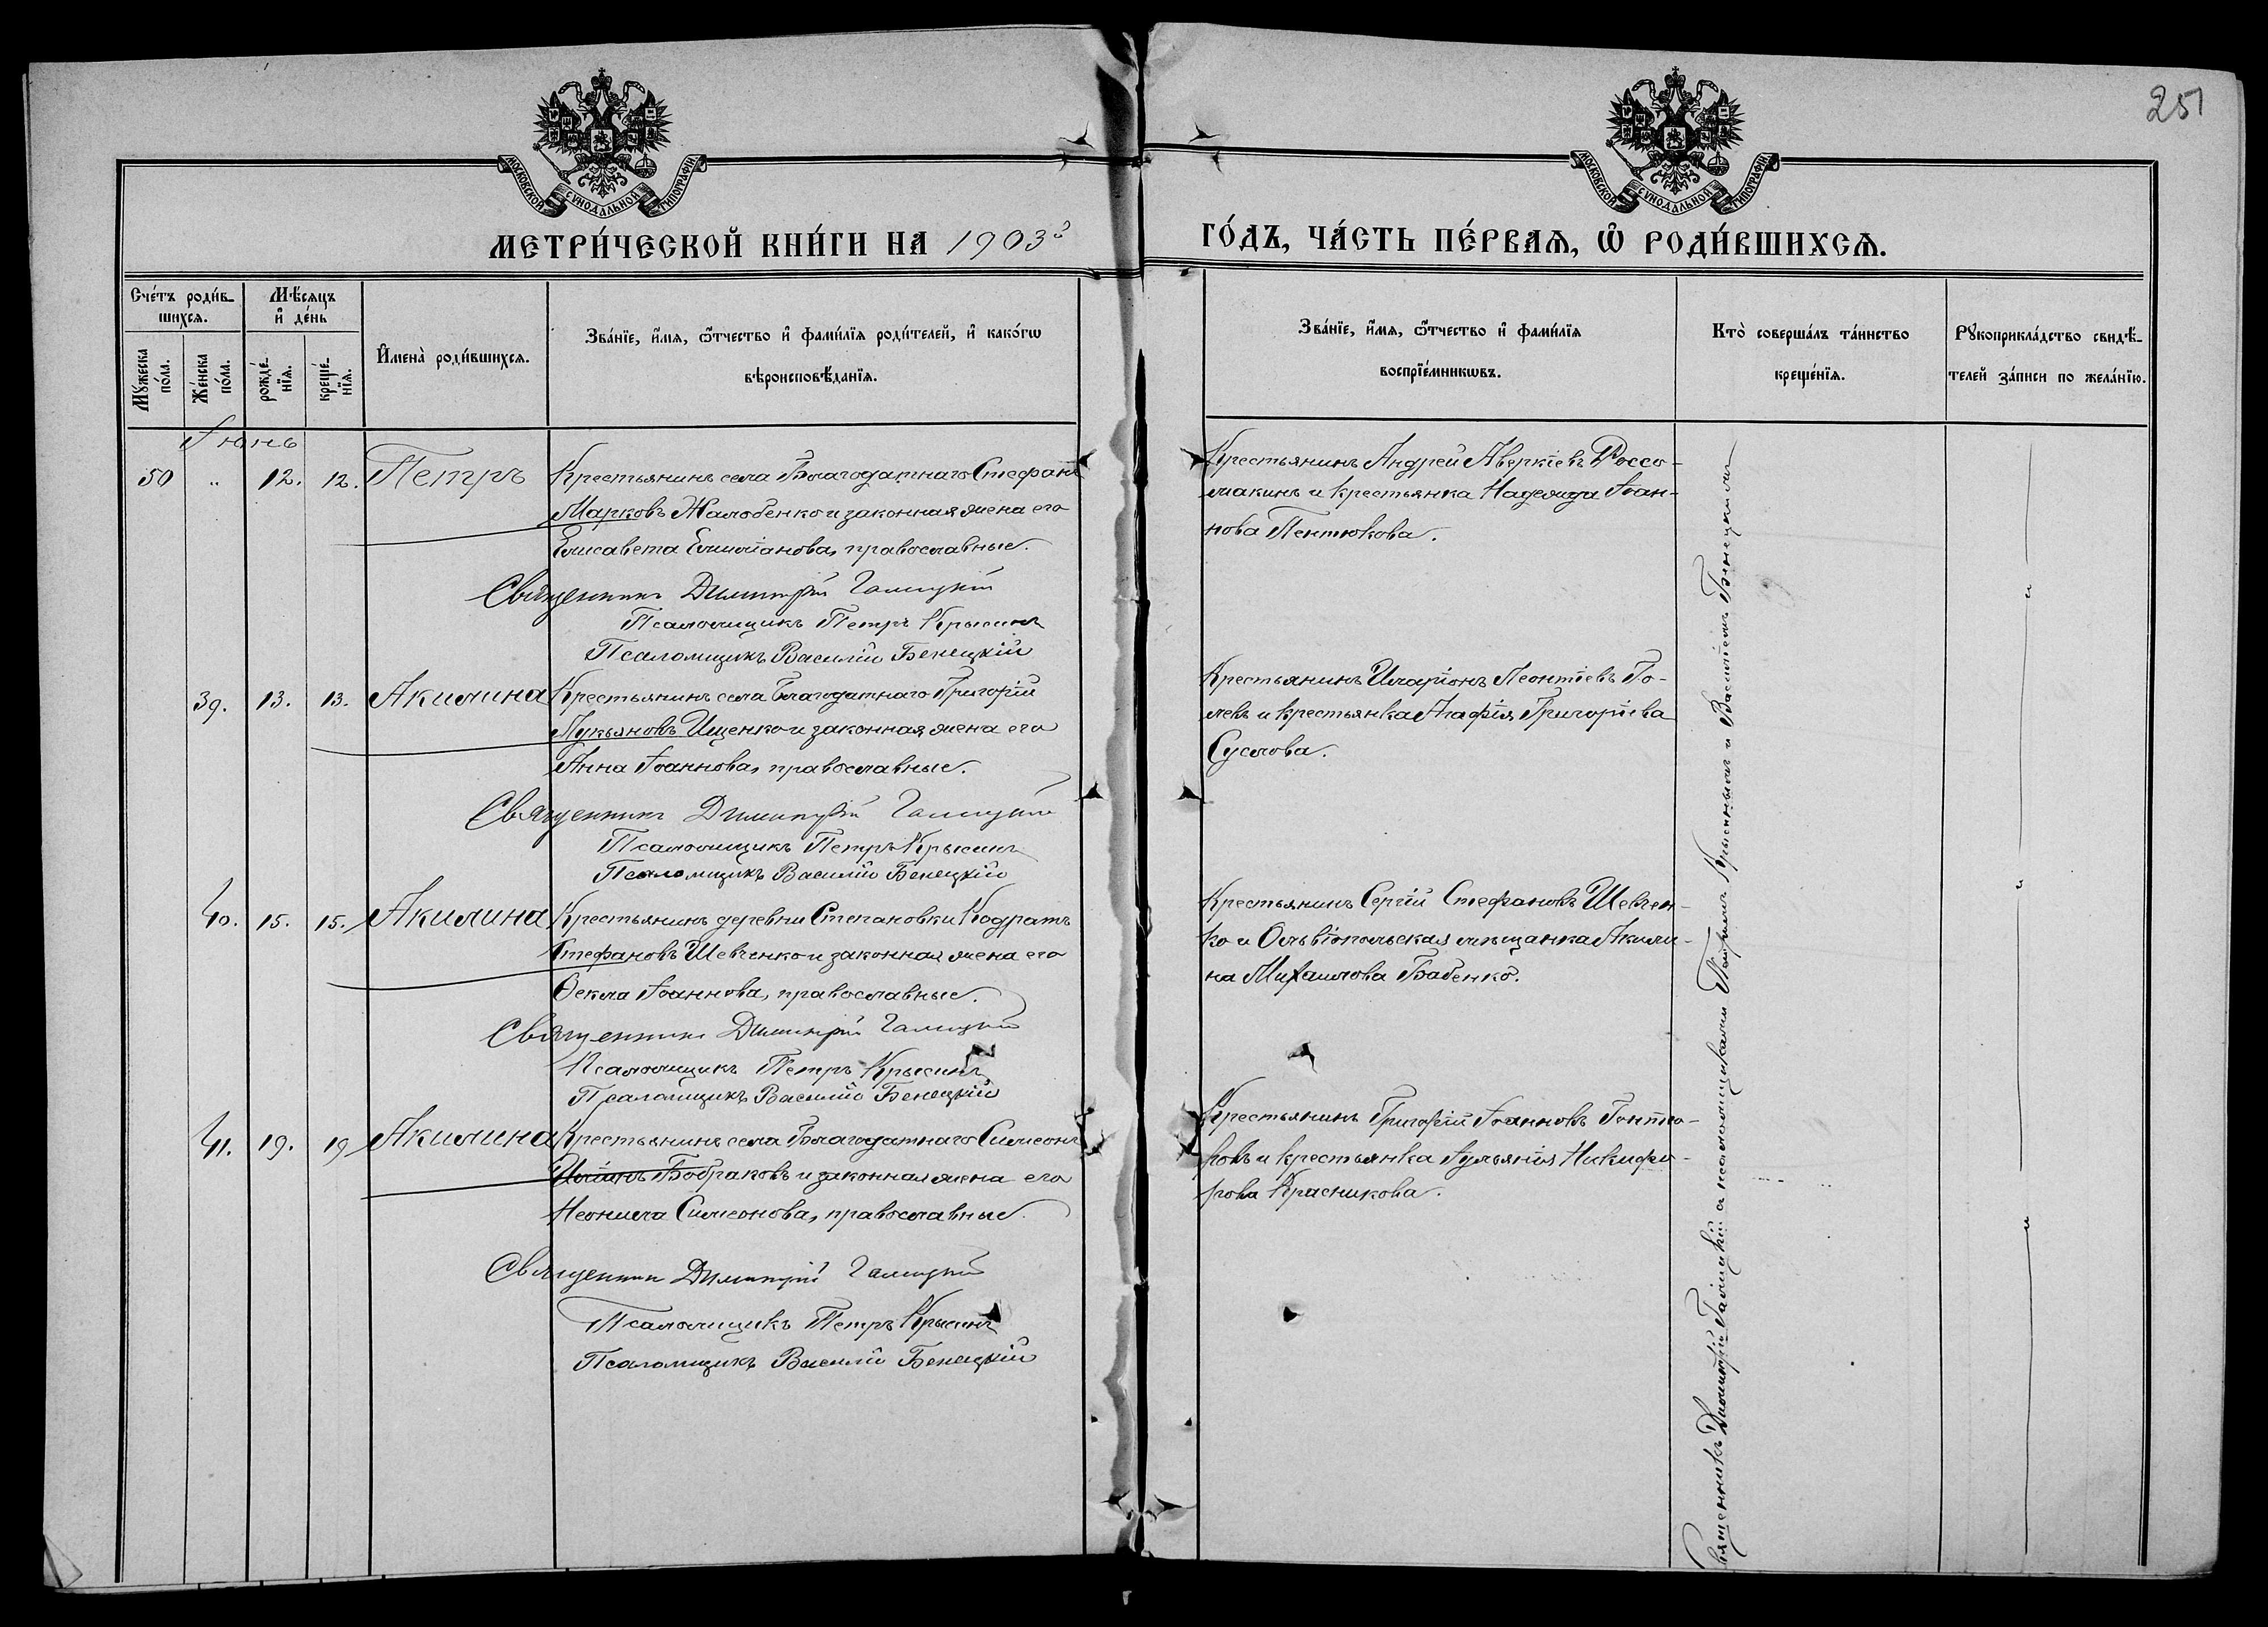 251
МОСКОВСКОЙ СУНОДАЛЬНОЙ ТИПОГРАФІИ
МОСКОВСКОЙ СУНОДАЛЬНОЙ ТИПОГРАФІИ
МЕТРИ́ЧЕСКОЙ КНИ́ГИ НА 1903й
ГО́ДЪ, ЧА́СТЬ ПЕ́РВАѦ, Ѿ РОДИ́ВШИХСѦ.
Сче́тъ роди́в-
шихсѧ.
Мꙋжеска по́ла.
Же́нска по́ла.
Мѣ́сѧцъ
и҆ де́нь
рожде́-
нїѧ.
креще́-
нїѧ.
И҆мена̀ роди́вшихсѧ.
Зва́нїе, и҆́мѧ, ѻ҆́тчество и҆ фами́лїѧ роди́телей, и҆ како́гѡ
вѣроисповѣ́данїѧ.
Зва́нїе, и҆́мѧ, ѻ҆́тчество и҆ фами́лїѧ
воспрїе́мникѡвъ.
Кто̀ соверша́лъ та́инство
креще́нїѧ.
Рꙋкоприкла́дство свидѣ́-
телей за́писи по жела́нїю.
Іюнь
50 " 12. 12. Петръ Крестьянинъ села Благодатнаго Стефанъ
Марковъ Жалобенко и законная жена его
Елисавета Емиліанова, православные.
Священникъ Димитрій Галицкій
Псаломщикъ Петръ Крысинъ
Псаломщикъ Василій Бенецкій
Крестьянинъ Андрей Аверкіевъ Россо-
макинъ и крестьянка Надежда Іоан-
нова Пентюхова.
39. 13. 13. Акилина Крестьянинъ села Благодатнаго Григорій
Лукьяновъ Ищенко и законная жена его
Анна Іоаннова, православные.
Священникъ Димитрій Галицкій
Псаломщикъ Петръ Крысинъ
Псаломщикъ Василій Бенецкій
Крестьянинъ Иларіонъ Леонтіевъ Го-
левъ и крестьянка Агафія Григоріева
Суслова.
40. 15. 15. Акилина Крестьянинъ деревни Степановки Кодратъ
Стефановъ Шевченко и законная жена его
Ѳекла Іоаннова, православные.
Священникъ Димитрій Галицкій
Псаломщикъ Петръ Крысинъ
Псаломщикъ Василій Бенецкій
Крестьянинъ Сергій Стефановъ Шевчен-
ко и Ольвіопольская мѣщанка Акили-
на Михаилова Бабенко.
41. 19. 19 Акилина Крестьянинъ села Благодатнаго Симеонъ
Бобраковъ и законная жена его
Неонила Симеонова, православные.
Священникъ Димитрій Галицкій
Псаломщикъ Петръ Крысинъ
Псаломщикъ Василій Бенецкій
Крестьянинъ Григорій Іоанновъ
и крестьянка Іуліанія Никифо-
рова Красникова.
Священникъ Димитрій Галицкій съ псаломщиками Петромъ Крысинымъ и Василіемъ Бенецкимъ